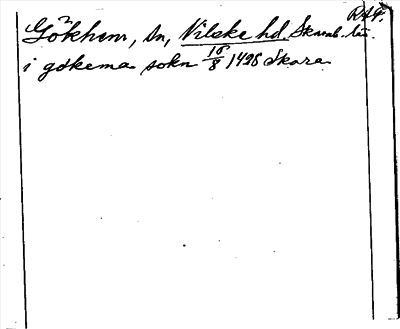 RAP.
Gökhem, sn, Vilske hd. Skarab. län.
i gökema sokn 18/8 1428 Skara